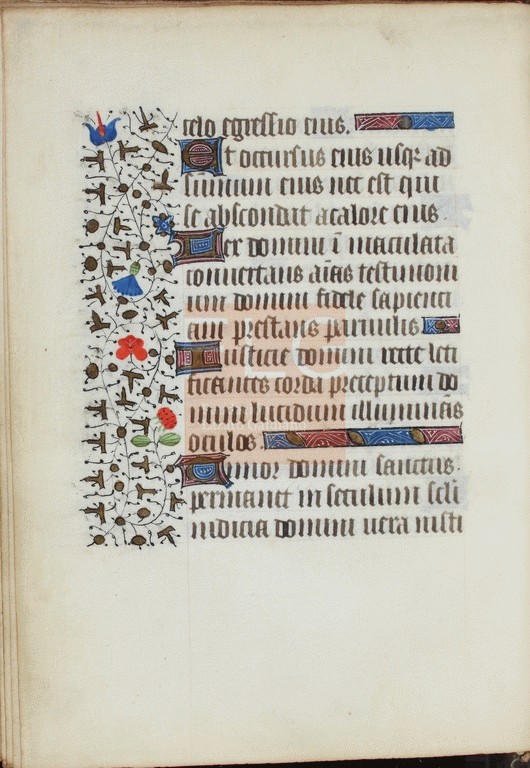 celo egressio eius.
Et occursus eius usqȝ ad
summum eius nec est qui
se abscondat a calore eius.
Lex domini ī maculata
convertens aīas testimoni
um domini fidele sapienti
am prestans parvulis
Iusticie domini recte leti
ficantes corda preceptum do
mini lucidum illuminās
oculos
Timor domini sanctus
permanet in seculum seculi
iudicia domini vera iusti